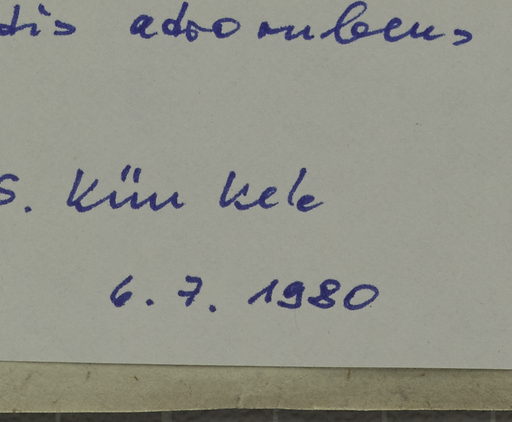 dis atro rubens
S. Künkele
6. 7. 1980